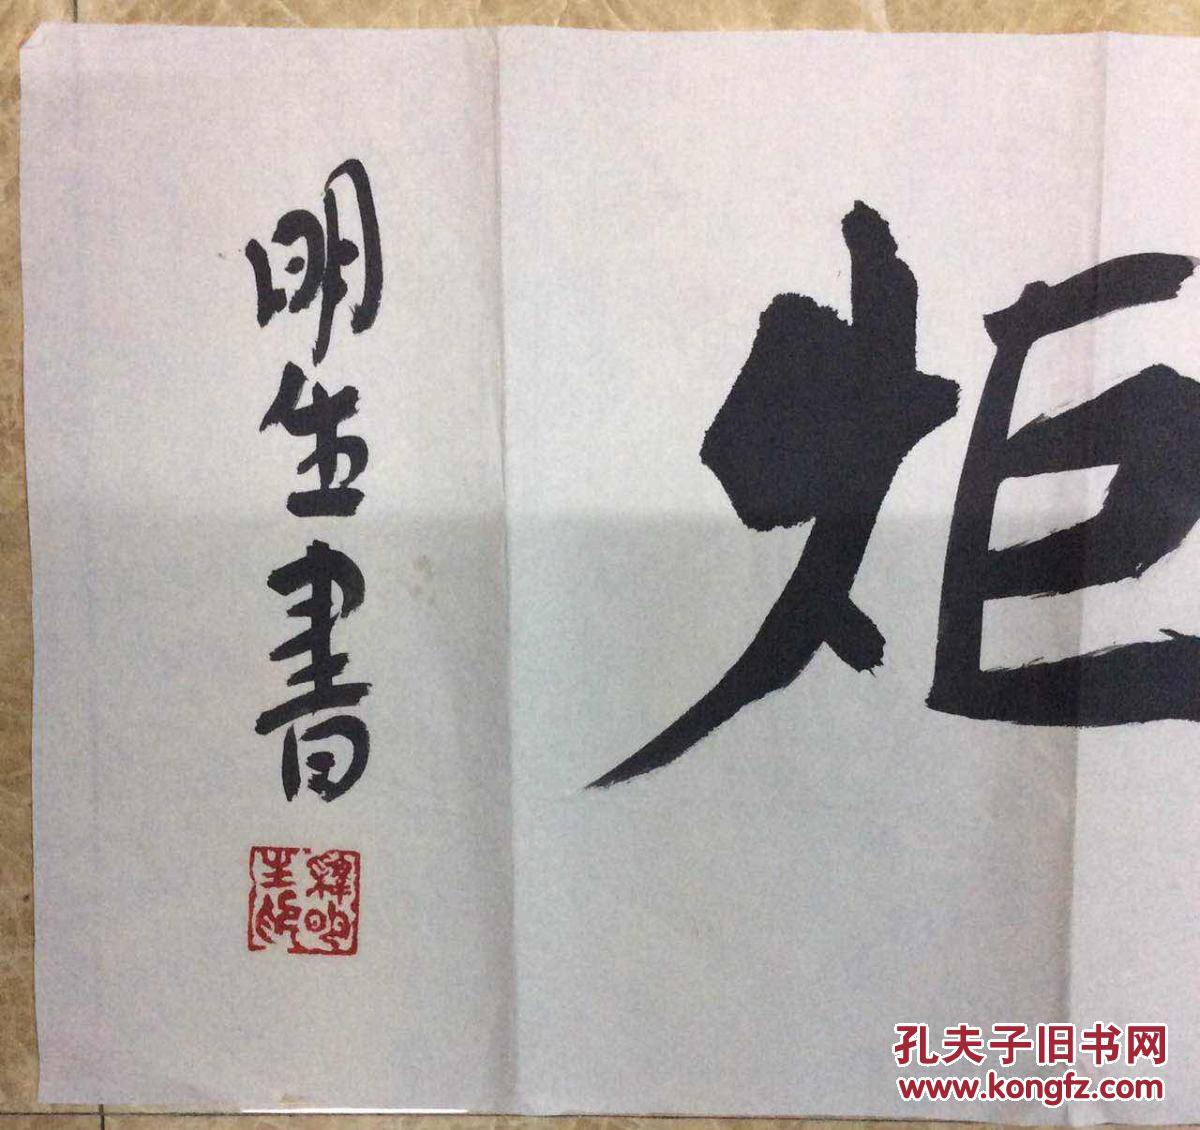 炬
明生書
釋明生印
孔夫子旧书网
www.kongfz.com